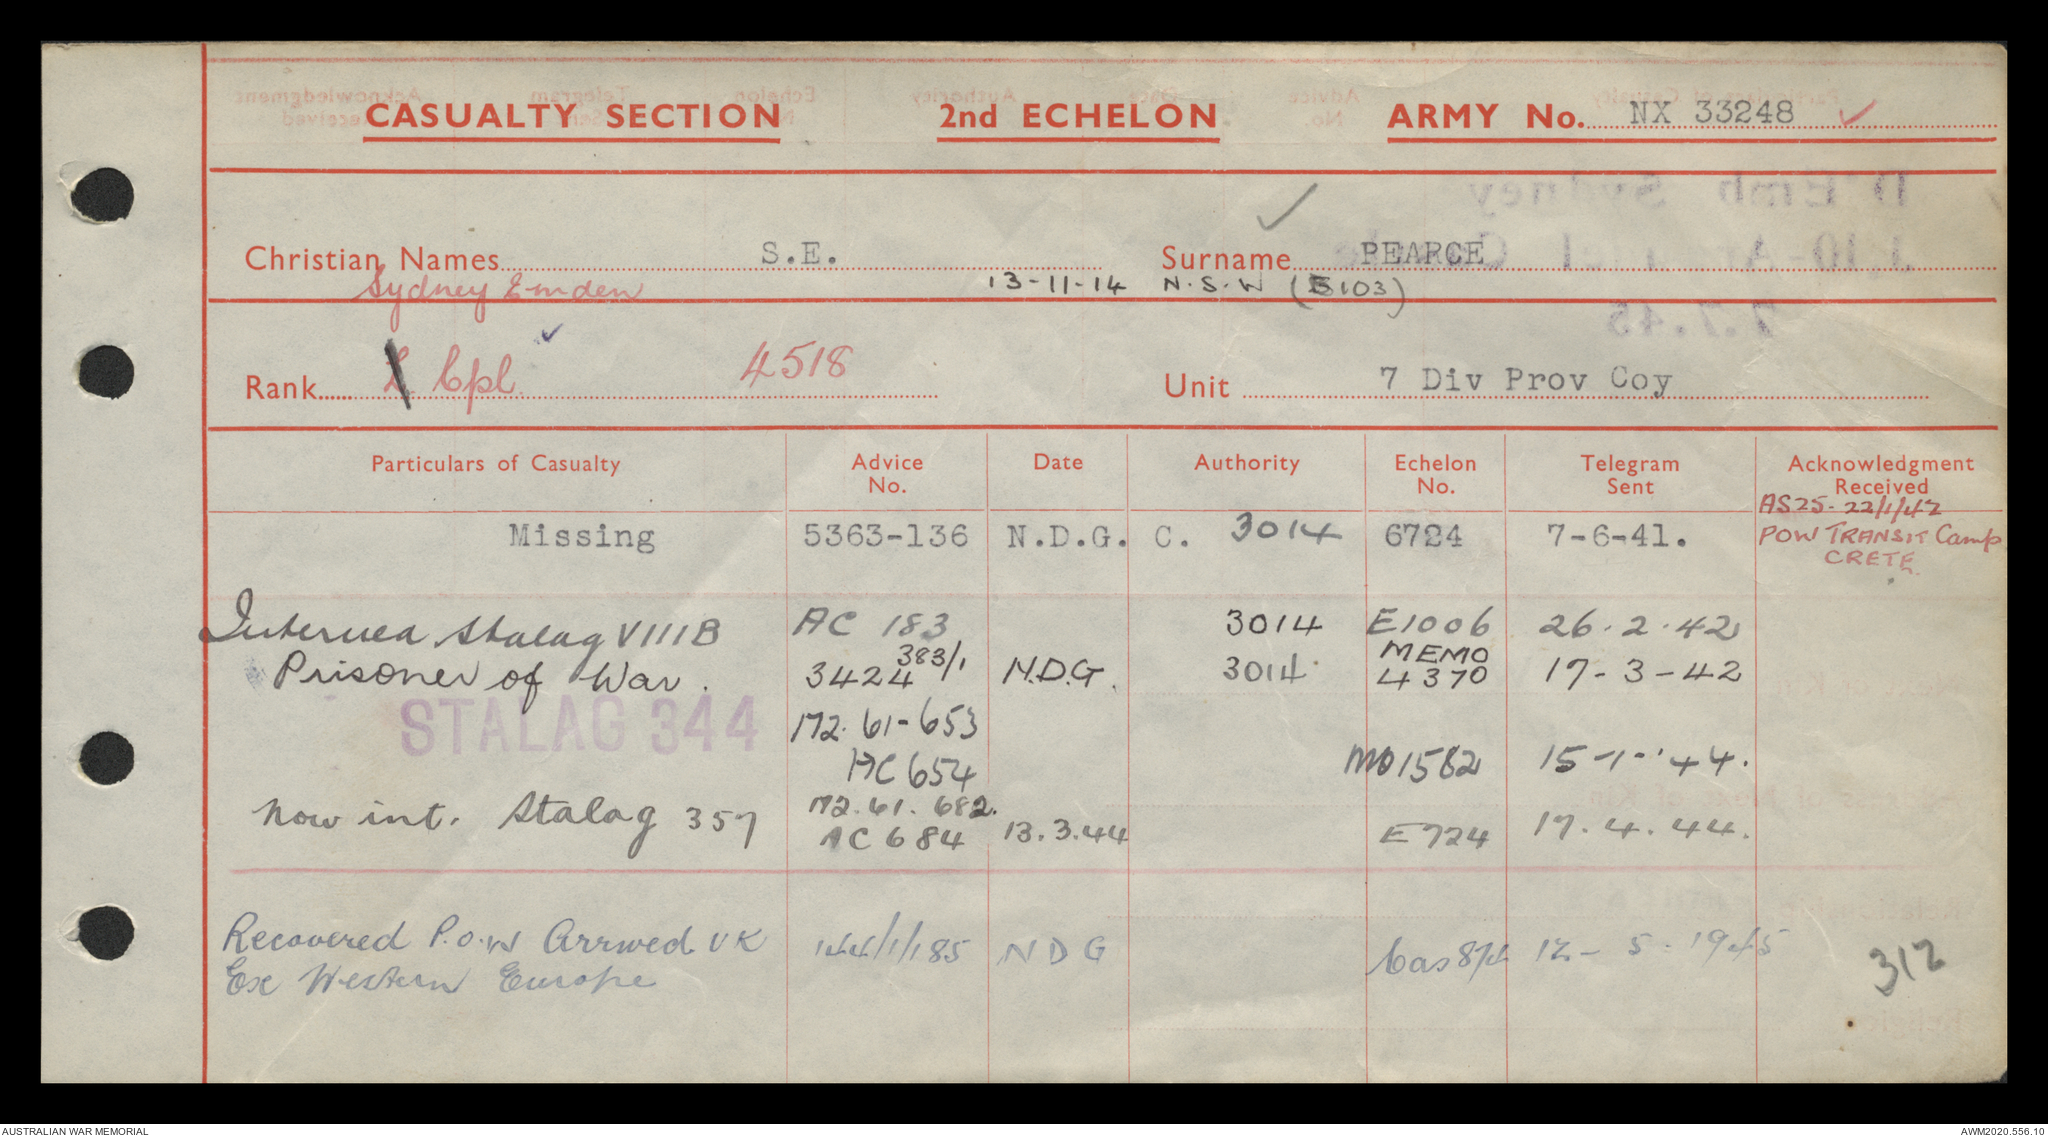 CASUALTY SECTION 2nd ECHELON ARMY No. NX 33248
Christian Names S.E. Surname PEARCE
Sydney Emden 13-11-14 N.S.W (5103)
Rank L Cpl. 4518 Unit 7 Div Prov Coy
Particulars of Casualty Advice No. Date Authority Echelon No. Telegram Sent Acknowledgment Received
AS25-22/1/42
Missing 5363-136 N.D.G. C. 3014 6724 7-6-41. POW TRANSIT Camp
CRETE.
Interned Stalag VIIIB AC 183 3014 E1006 26.2.42
383/1 MEMO
Prisoner of War. 3424 N.D.G. 3014 4370 17-3-42
STALAG 344 172.61-653
AC 654 MO1582 15-1-'44.
172.61.682.
Now int. Stalag 357 AC 684 13.3.44 E724 17.4.44.
Recovered P.O.W Arrived UK 144/1/185 NDG Cas 12-5-1945
Ex Western Europe
312
AUSTRALIAN WAR MEMORIAL AWM2020.556.10